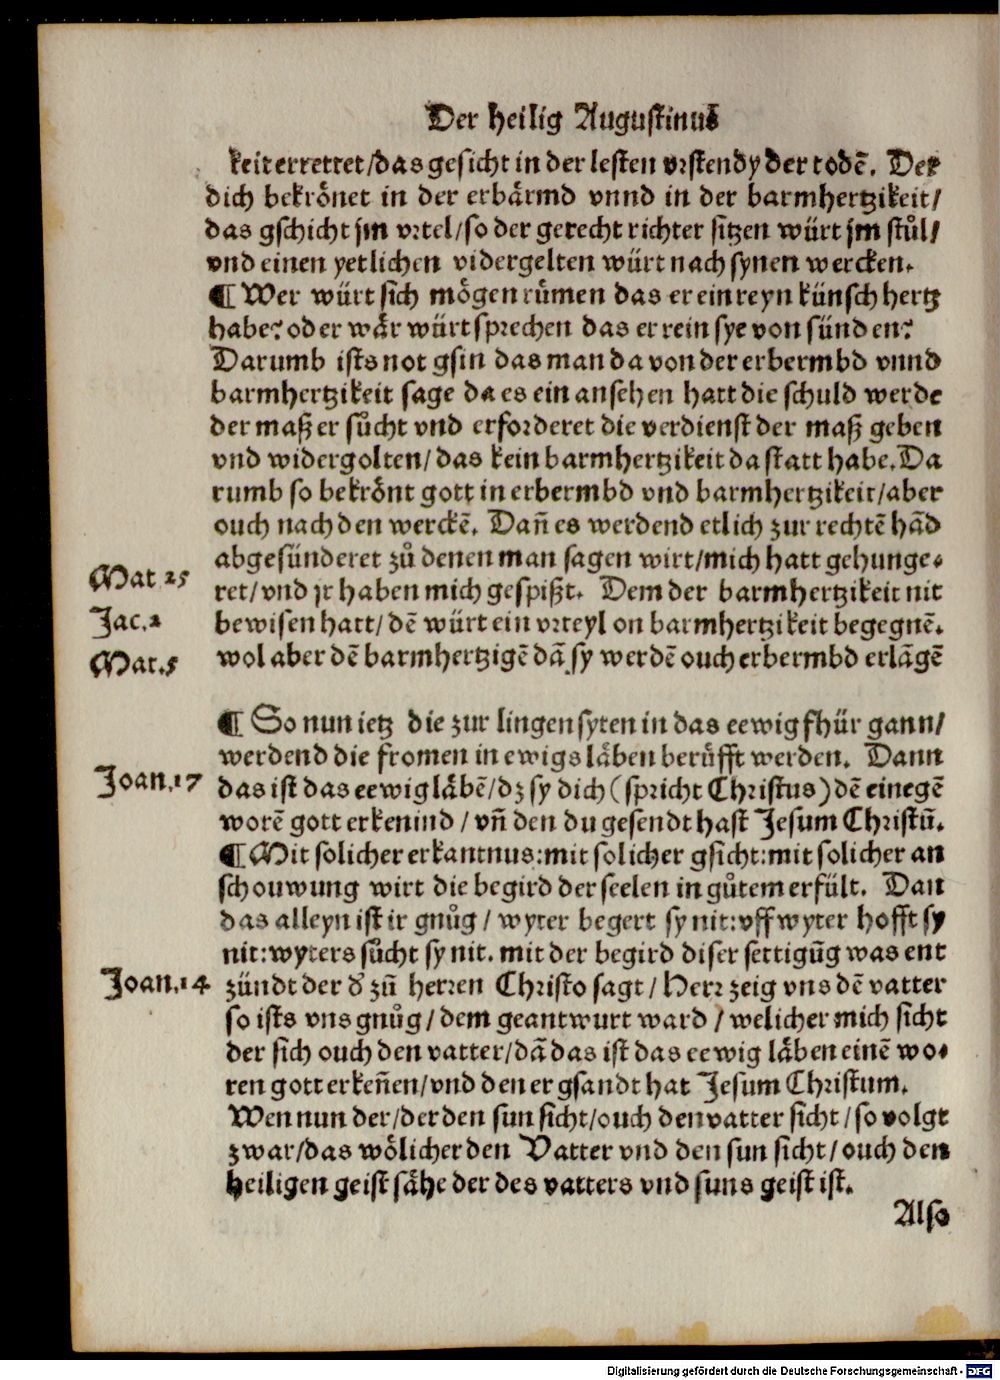 Der heilig Augustinus
keit errettet/das gesicht in der lesten vrstendy der todē. Der
dich bekrönet in der erbärmd vnnd in der barmhertzikeit/
das gschicht jm vrtel/so der gerecht richter sitzen würt jm stůl/
vnd einen yetlichen vidergelten würt nach synen wercken.
¶ Wer würt sich mögen růmen das er ein reyn künsch hertz
habe? oder wår würt sprechen das er rein sye von sünden?
Darumb ists not gsin das man da von der erbermbd vnnd
barmhertzikeit sage da es ein ansehen hatt die schuld werde
der maß er sůcht vnd erforderet die verdienst der maß geben
vnd widergolten/das kein barmhertzikeit da statt habe. Da
rumb so bekrönt gott in erbermbd vnd barmhertzikeit/aber
ouch nach den werckē. Dañ es werdend etlich zur rechtē hād
abgesünderet zů denen man sagen wirt/mich hatt gehunge⸗
Mat 25
ret/vnd jr haben mich gespißt. Dem der barmhertzikeit nit
Jac.2
bewisen hatt/dē würt ein vrteyl on barmhertzikeit begegnē.
Mat.5
wol aber dē barmhertzigē dā sy werdē ouch erbermbd erlāgē
¶ So nun ietz die zur lingen syten in das eewig fhür gann/
werdend die fromen in ewigs läben berůfft werden. Dann
Joan.17
das ist das eewig läbē/dz sy dich (spricht Christus) dē einegē
worē gott erkenind/vñ den du gesendt hast Jesum Christū.
¶ Mit solicher erkantnus:mit solicher gsicht:mit solicher an
schouwung wirt die begird der seelen in gůtem erfült. Dan
das alleyn ist ir gnůg/wyter begert sy nit:vff wyter hofft sy
nit:wyters sůcht sy nit. mit der begird diser settigūg was ent
Joan.14
zündt der d' zū herren Christo sagt/Herr zeig vns dē vatter
so ists vns gnůg/dem geantwurt ward/welicher mich sicht
der sich ouch den vatter/dā das ist das eewig läben einē wo⸗
ren gott erkeñen/vnd den er gsandt hat Jesum Christum.
Wen nun der/der den sun sicht/ouch den vatter sicht/so volgt
zwar/das wölicher den Vatter vnd den sun sicht/ouch den
heiligen geist sähe der des vatters vnd suns geist ist.
Also
Digitalisierung gefördert durch die Deutsche Forschungsgemeinschaft - DFG